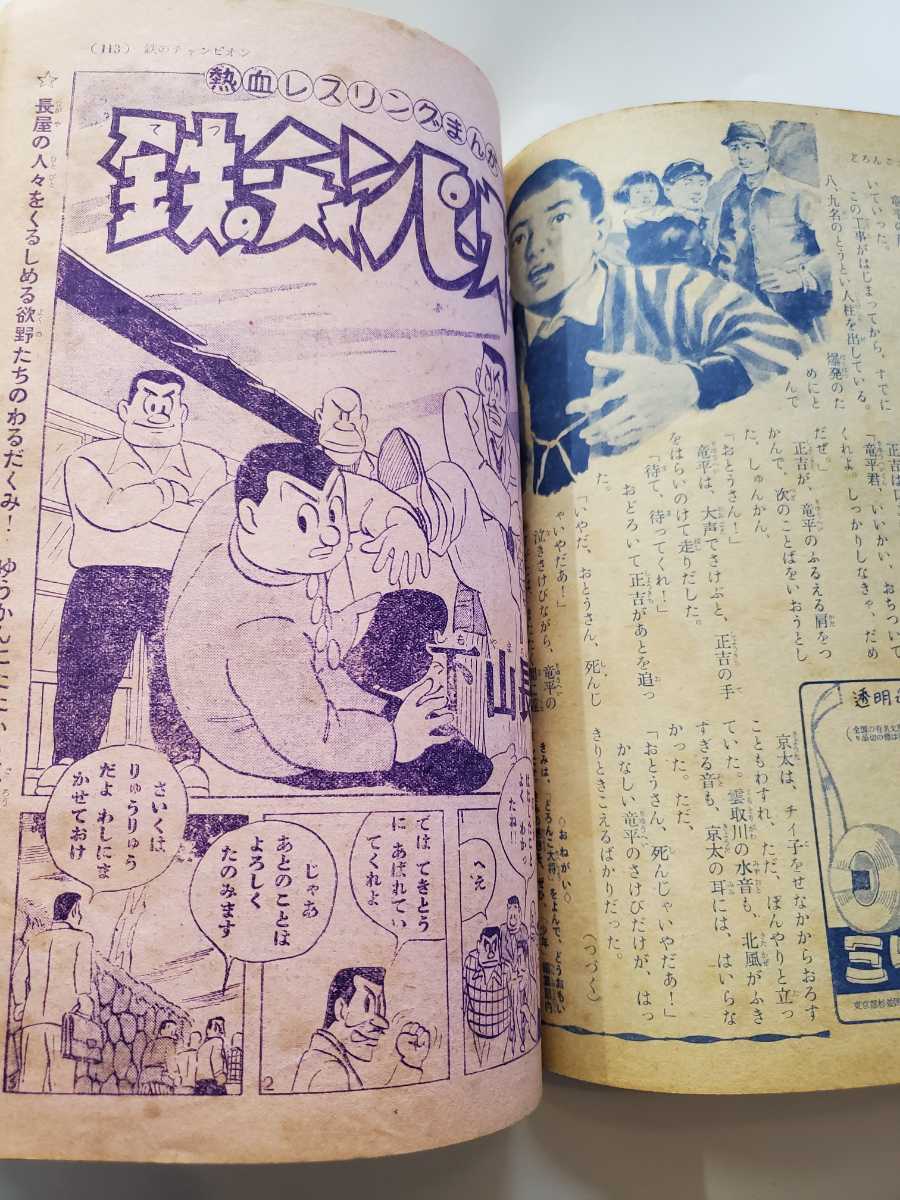 どろんこ
いていった。
この工事がはじまってから、すでに
八、九名のとうとい人柱を出している。
爆発のた
めにと
んで
正吉は
「竜平君、いいかい、おちついて
くれよ。しっかりしなきゃ、だめ
だぜ。」
正吉が、竜平のふるえる肩をつ
かんで、次のことばをいおうとし
た、しゅんかん、
「おとうさん！」
竜平は、大声でさけぶと、正吉の手
をはらいのけて走りだした。
「待て、待ってくれ！」
おどろいて正吉があとを追っ
た。
「いやだ、おとうさん、死んじ
ゃいやだあ！」
泣きさけびながら、竜平の
京太は、チイ子をせなかからおろす
こともわすれ、ただ、ぼんやりと立っ
ていた。雲取川の水音も、北風がふき
すぎる音も、京太の耳には、はいらな
かった。ただ、
「おとうさん、死んじゃいやだあ！」
かなしい竜平のさけびだけが、はっ
きりときこえるばかりだった。
〈つづく〉
◇おねがい◇
きみは、「どろんこ大将」をよんで、どうおもい
透明
東京都杉並区
（113） 鉄のチャンピオン
熱血レスリングまんが
鉄のチャンピオ
てつ
☆長屋の人々をくるしめる欲野たちのわるだくみ！ ゆうかんに
下山長
しもやま
へえ
では てきとう
に あばれてい
てくれよ
じゃあ
あとのことは
よろしく
たのみます
2
さいくは
りゅうりゅう
だよ わしにま
かせておけ
3